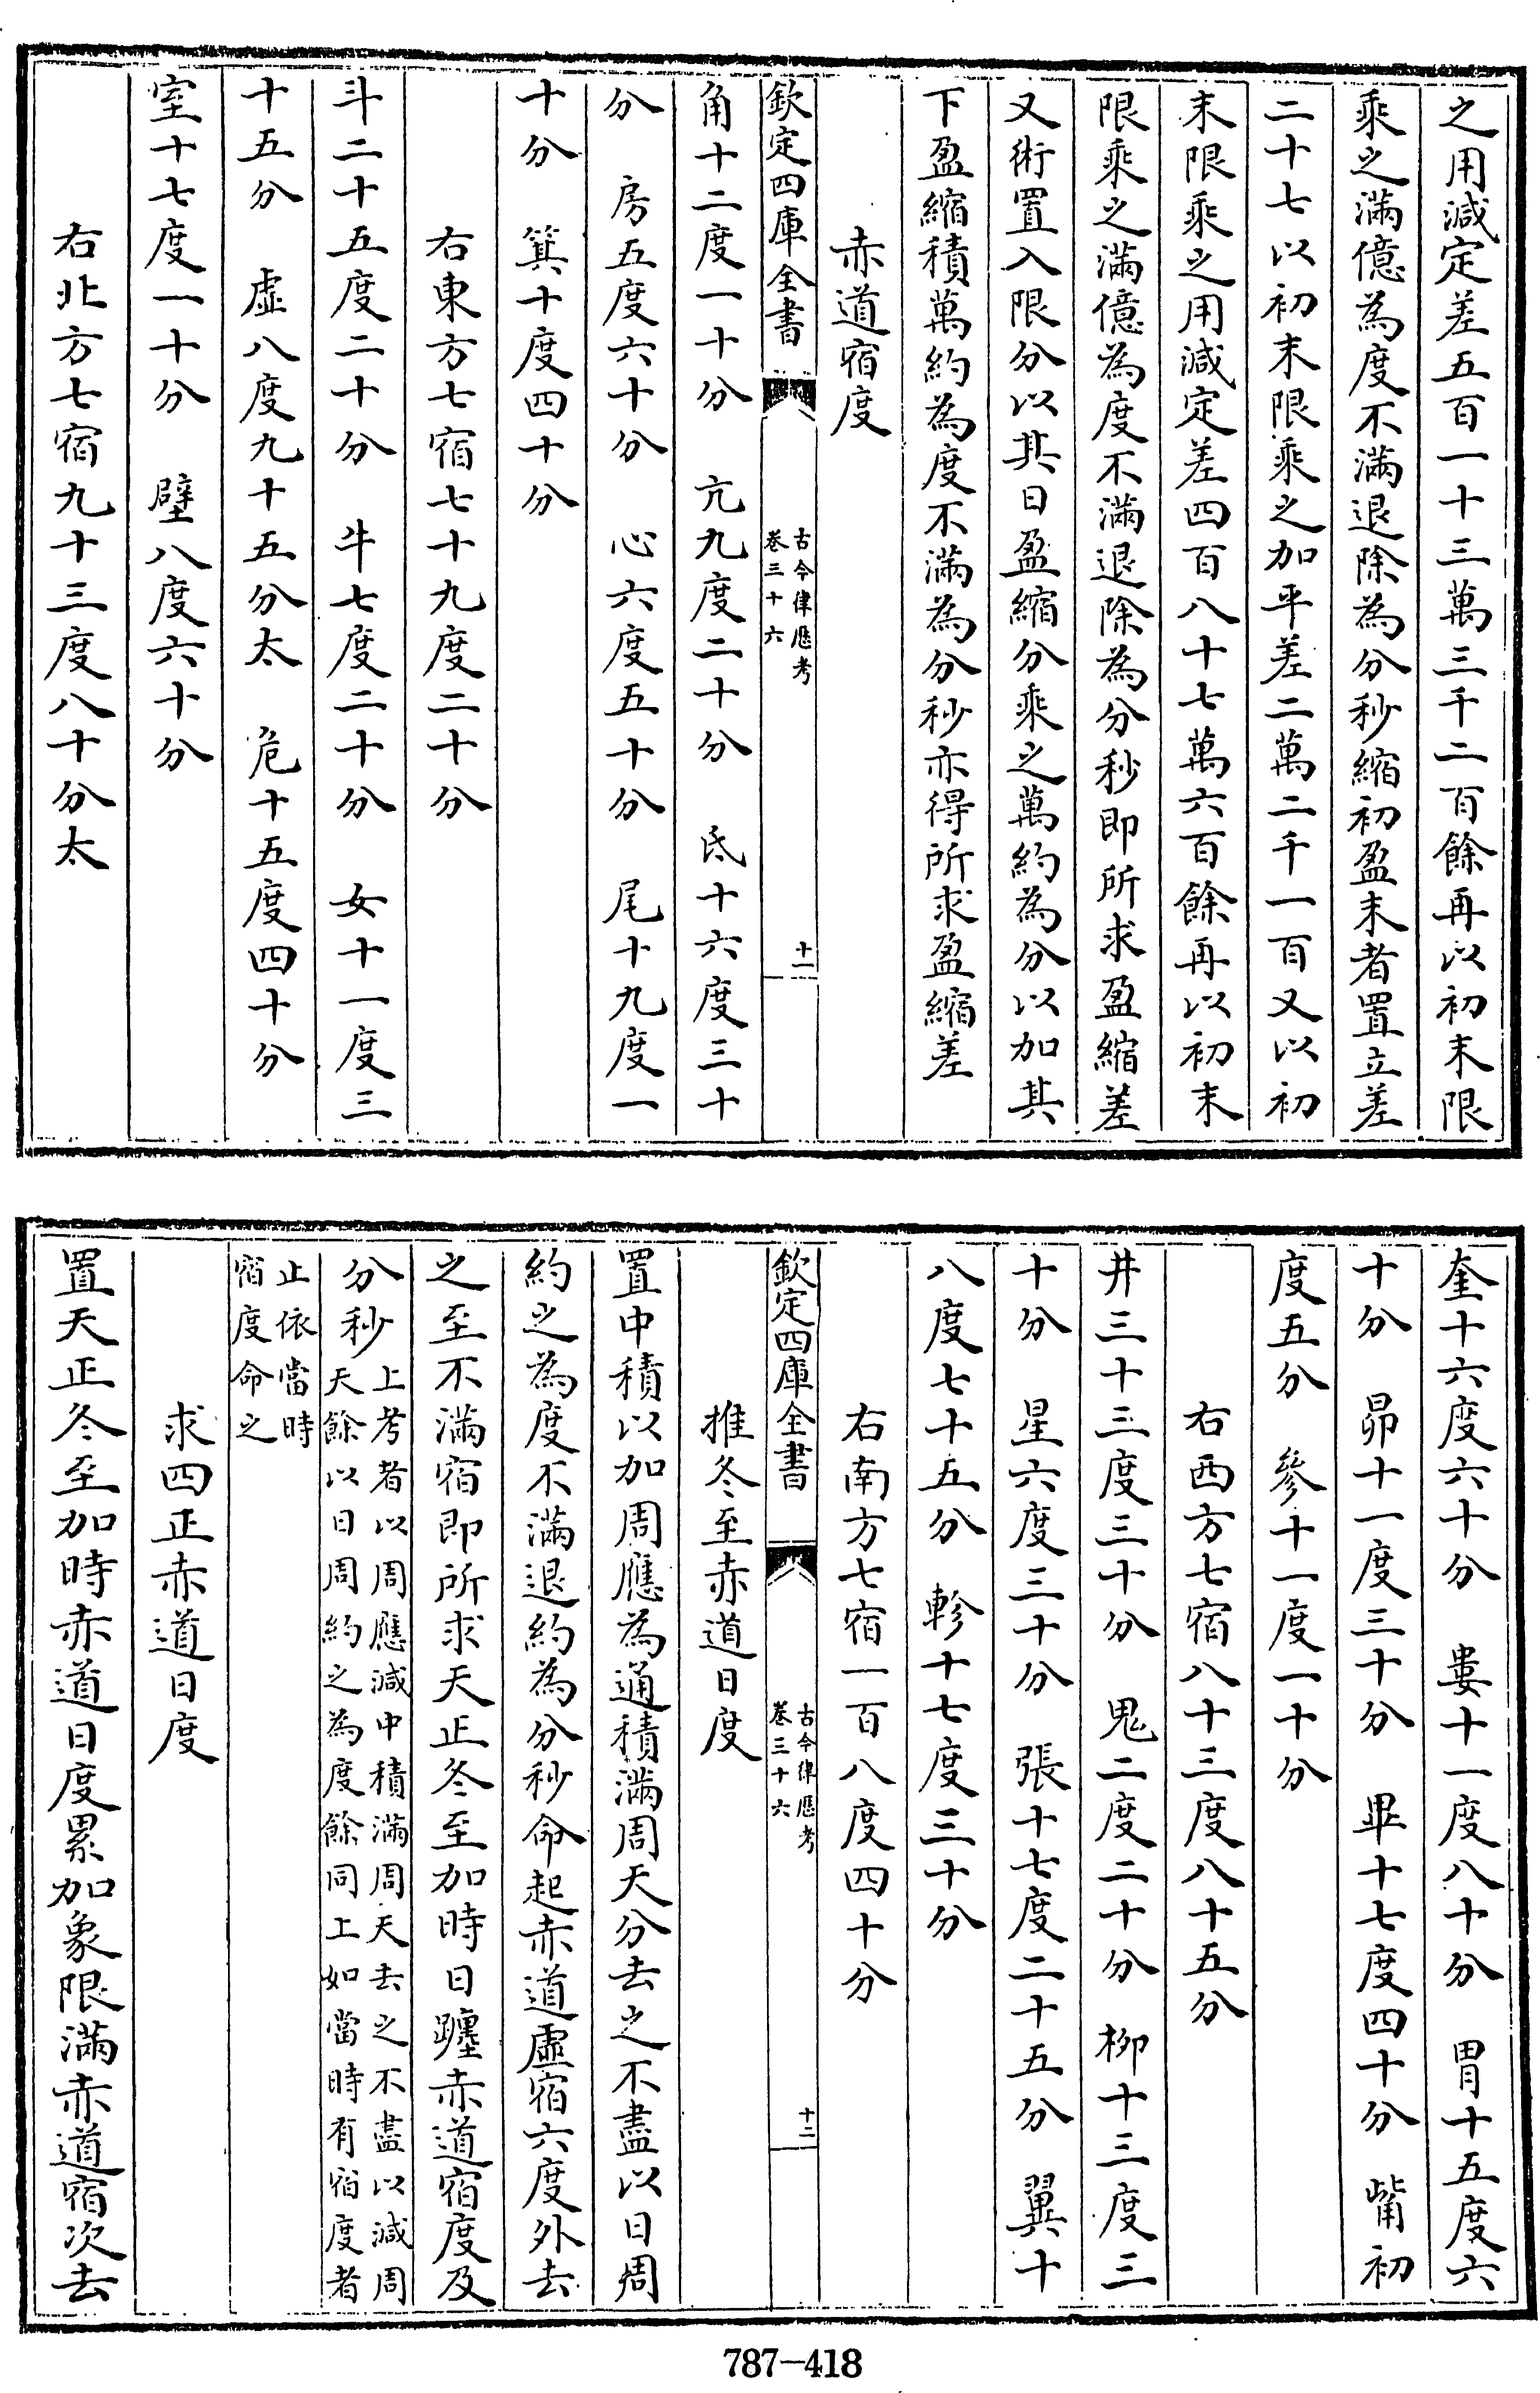 之用減定差五百一十三萬三千二百餘再以初末限
乘之滿億為度不滿退除為分秒縮初盈末者置立差
二十七以初末限乘之加平差二萬二千一百又以初
末限乘之用減定差四百八十七萬六百餘再以初末
限乘之滿億為度不滿退除為分秒即所求盈縮差
又術置入限分以其日盈縮分乘之萬約為分以加其
下盈縮積萬約為度不滿為分秒亦得所求盈縮差
赤道宿度
欽定四庫全書
古今律歷考
卷三十六
十一
角十二度一十分 亢九度二十分 氐十六度三十
分 房五度六十分 心六度五十分 尾十九度一
十分 箕十度四十分
右東方七宿七十九度二十分
斗二十五度二十分 牛七度二十分 女十一度三
十五分 虛八度九十五分太 危十五度四十分
室十七度一十分 壁八度六十分
右北方七宿九十三度八十分太
奎十六度六十分 婁十一度八十分 胃十五度六
十分 昴十一度三十分 畢十七度四十分 觜初
度五分 參十一度一十分
右西方七宿八十三度八十五分
井三十三度三十分 鬼二度二十分 柳十三度三
十分 星六度三十分 張十七度二十五分 翼十
八度七十五分 軫十七度三十分
右南方七宿一百八度四十分
欽定四庫全書
古今律歷考
卷三十六
十二
推冬至赤道日度
置中積以加周應為通積滿周天分去之不盡以日周
約之為度不滿退約為分秒命起赤道虛宿六度外去
之至不滿宿即所求天正冬至加時日躔赤道宿度及
分秒
上考者以周應減中積滿周天去之不盡以減周
天餘以日周約之為度餘同上如當時有宿度者
止依當時
宿度命之
求四正赤道日度
置天正冬至加時赤道日度累加象限滿赤道宿次去
787-418